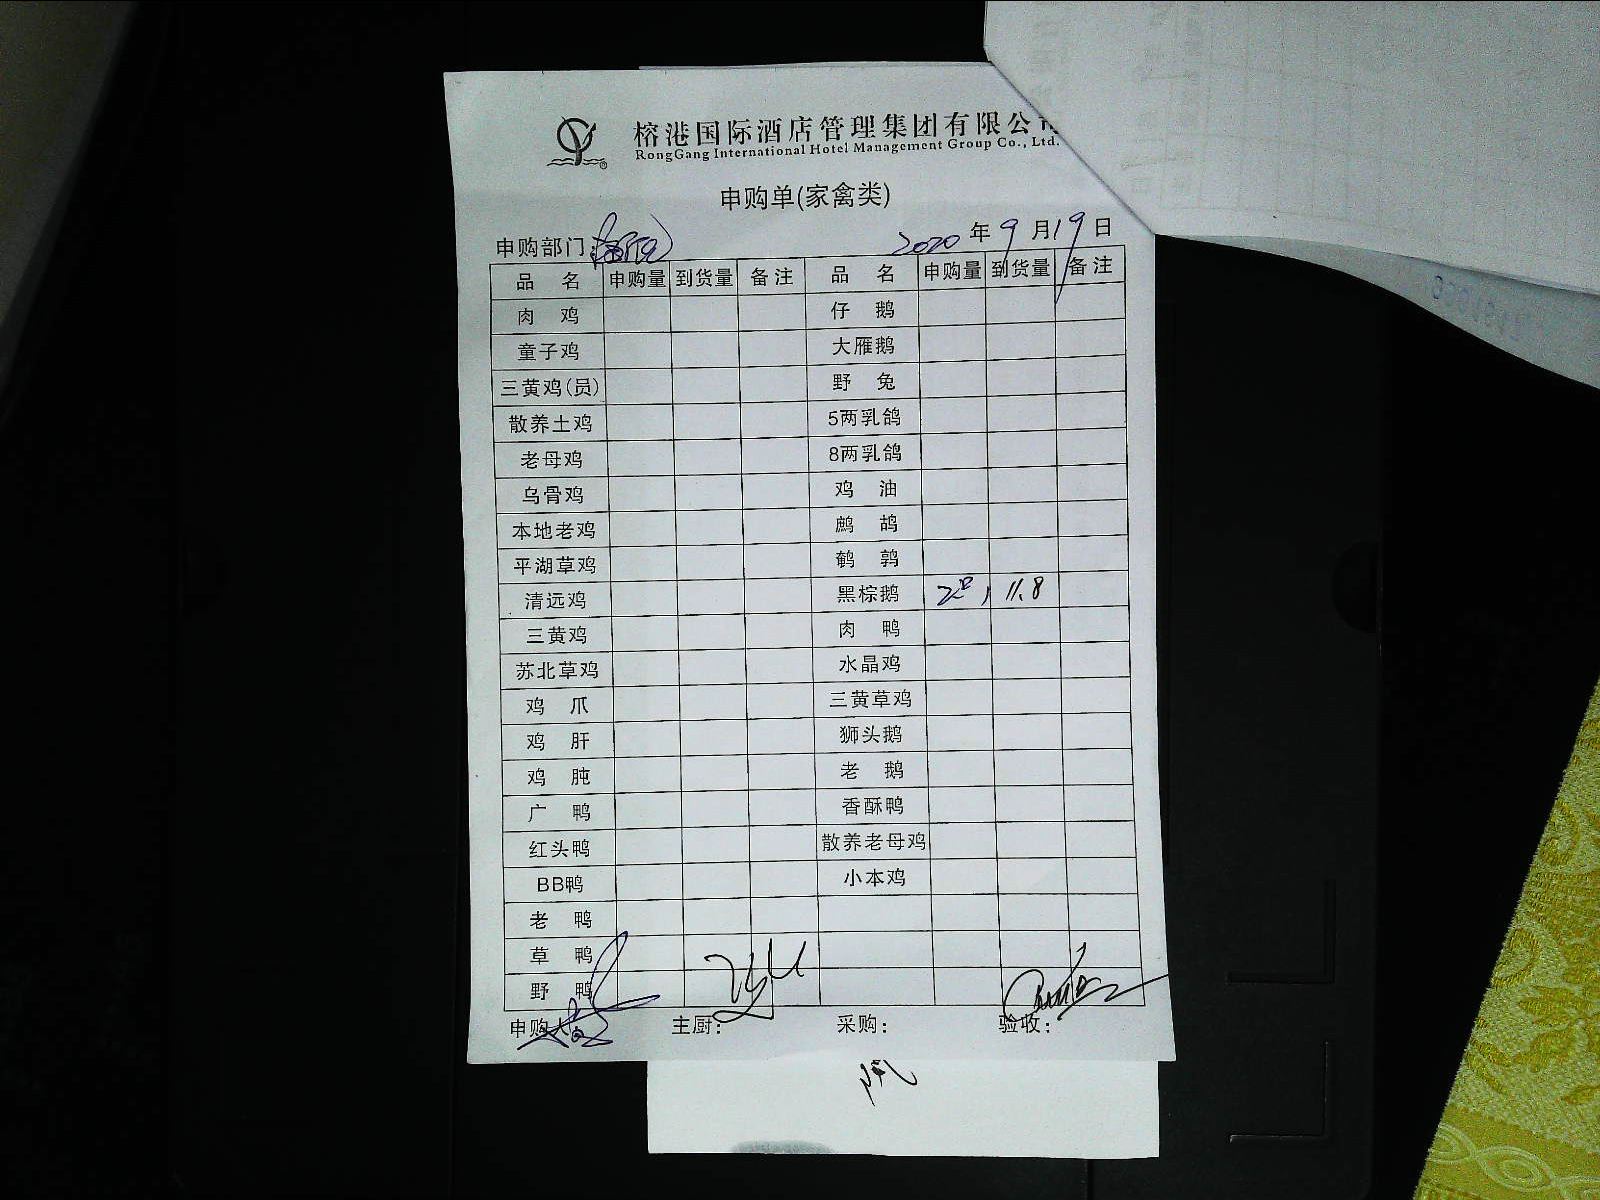 榕港国际酒店管理集团有限公司
RongGang International Hotel Management Group Co., Ltd.
申购单(家禽类)
申购部门: 2020 年 9 月 19 日
品 名 申购量 到货量 备注 品 名 申购量 到货量 备注
肉 鸡 仔 鹅
童子鸡 大雁鹅
三黄鸡(员) 野 兔
散养土鸡 5两乳鸽
老母鸡 8两乳鸽
乌骨鸡 鸡 油
本地老鸡 鹧 鸪
平湖草鸡 鹌 鹑
清远鸡 黑棕鹅 2只 11.8
三黄鸡 肉 鸭
苏北草鸡 水晶鸡
鸡 爪 三黄草鸡
鸡 肝 狮头鹅
鸡 肫 老 鹅
广 鸭 香酥鸭
红头鸭 散养老母鸡
BB鸭 小本鸡
老 鸭
草 鸭
野 鸭
申购人 主厨: 采购: 验收: